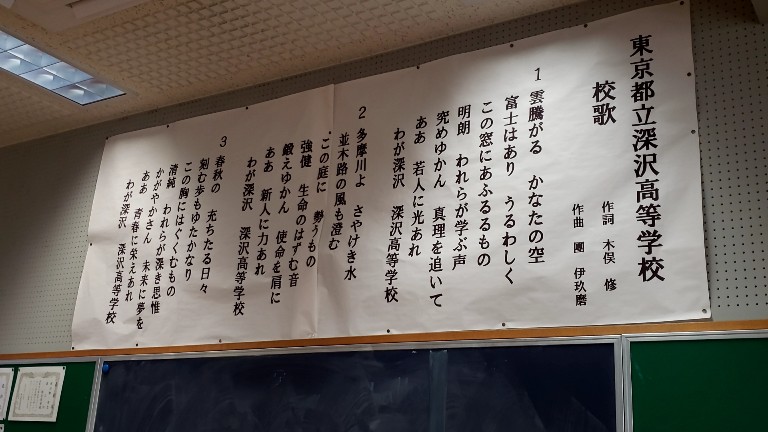 東京都立深沢高等学校
校歌
作詞 木俣 修
作曲 團 伊玖磨
1 雲騰がる かなたの空
富士はあり うるわしく
この窓にあふるるもの
明朗 われらが学ぶ声
究めゆかん 真理を追いて
ああ 若人に光あれ
わが深沢 深沢高等学校
2 多摩川よ さやけき水
並木路の風も澄む
この庭に 勢うもの
強健 生命のはずむ音
鍛えゆかん 使命を肩に
ああ 新人に力あれ
わが深沢 深沢高等学校
3 春秋の 充ちたる日々
刻む歩もゆたかなり
この胸にはぐくむもの
清純 われらが深き思惟
かがやかさん 未来に夢を
ああ 青春に栄えあれ
わが深沢 深沢高等学校